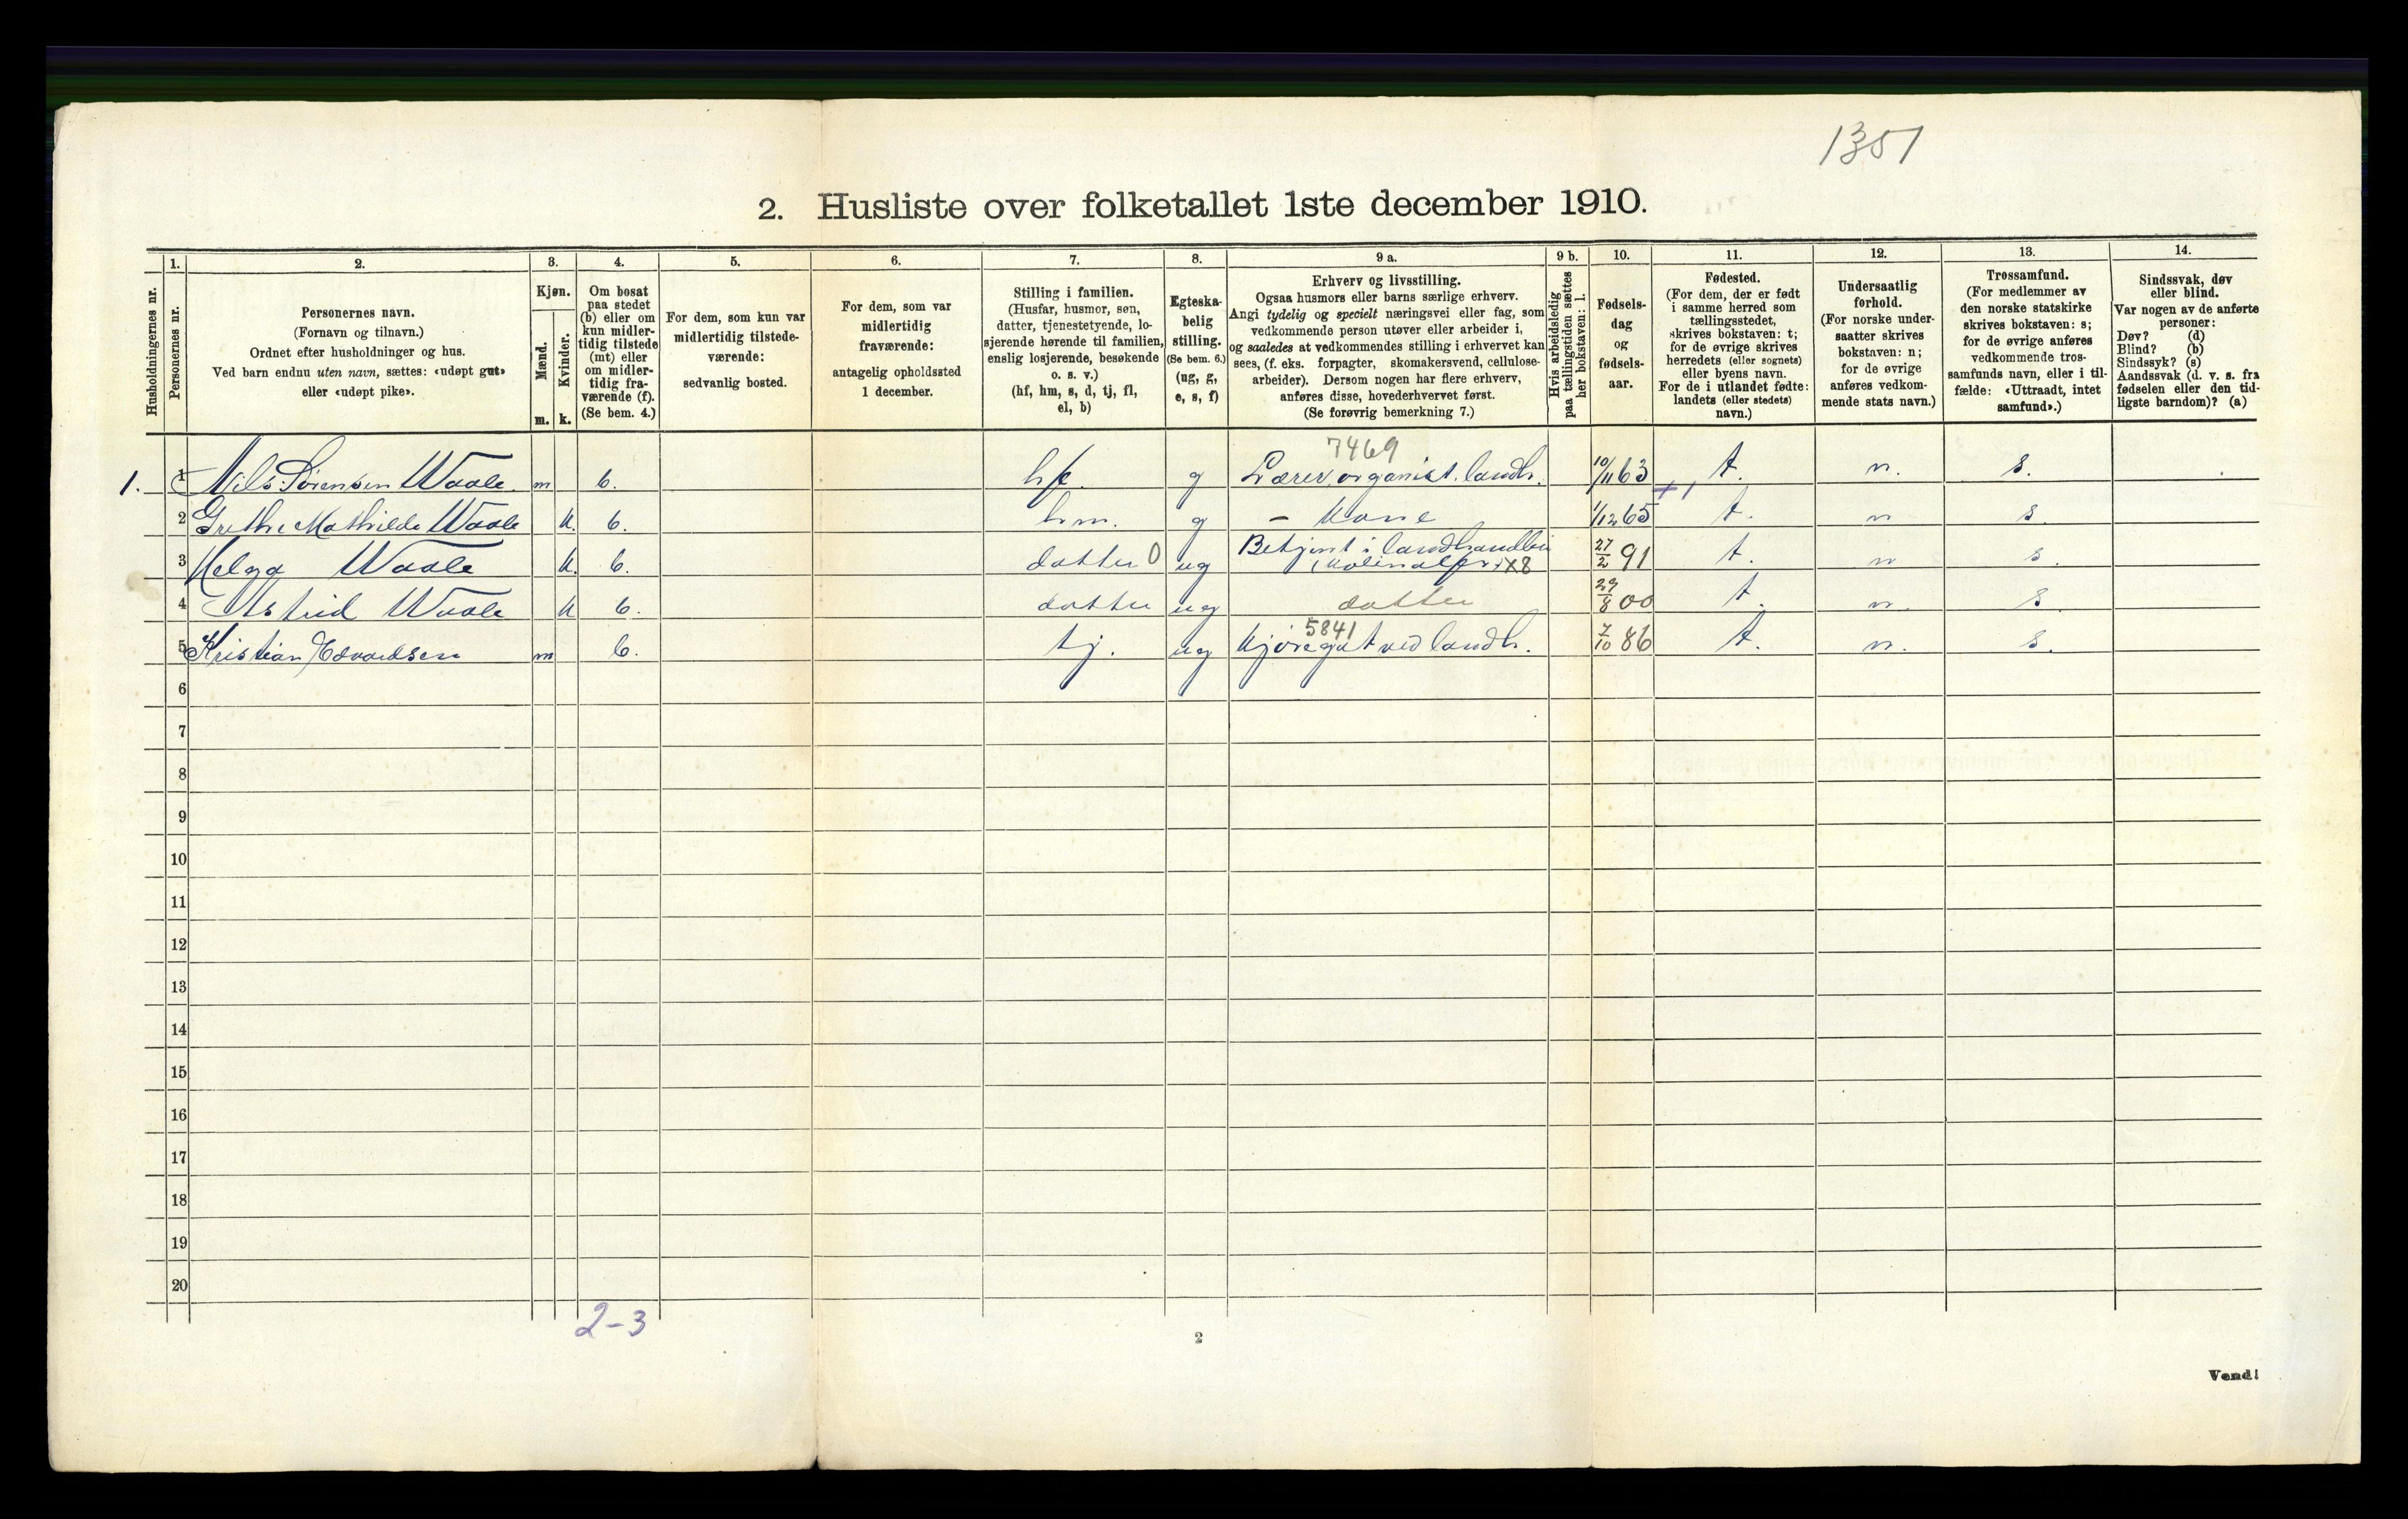 1351
2. Husliste over folketallet 1ste december 1910.
Husholdningernes nr.
1.
Personernes nr.
2.
Personernes navn.
(Fornavn og tilnavn.)
Ordnet efter husholdninger og hus.
Ved barn endnu uten navn, sættes: «udøpt gut»
eller «udøpt pike».
3.
Kjøn.
Mænd.
m.
Kvinder.
k.
4.
Om bosat
paa stedet
(b) eller om
kun midler-
tidig tilstede
(mt) eller
om midler-
tidig fra-
værende (f).
(Se bem. 4.)
5.
For dem, som kun var
midlertidig tilstede-
værende:
sedvanlig bosted.
6.
For dem, som var
midlertidig
fraværende:
antagelig opholdssted
1 december.
7.
Stilling i familien.
(Husfar, husmor, søn,
datter, tjenestetyende, lo-
sjerende hørende til familien,
enslig losjerende, besøkende
o. s. v.)
(hf, hm, s, d, tj, fl,
el, b)
8.
Egteska-
belig
stilling.
(Se bem. 6.)
(ug, g,
e, s, f)
9 a.
Erhverv og livsstilling.
Ogsaa husmors eller barns særlige erhverv.
Angi tydelig og specielt næringsvei eller fag, som
vedkommende person utøver eller arbeider i,
og saaledes at vedkommendes stilling i erhvervet kan
sees, (f. eks. forpagter, skomakersvend, cellulose-
arbeider). Dersom nogen har flere erhverv,
anføres disse, hovederhvervet først.
(Se forøvrig bemerkning 7.)
9 b.
Hvis arbeidsledig
paa tællingstiden sættes
her bokstaven: l.
10.
Fødsels-
dag
og
fødsels-
aar.
11.
Fødested.
(For dem, der er født
i samme herred som
tællingsstedet,
skrives bokstaven: t;
for de øvrige skrives
herredets (eller sognets)
eller byens navn.
For de i utlandet fødte:
landets (eller stedets)
navn.)
12.
Undersaatlig
forhold.
(For norske under-
saatter skrives
bokstaven: n;
for de øvrige
anføres vedkom-
mende stats navn.)
13.
Trossamfund.
(For medlemmer av
den norske statskirke
skrives bokstaven: s;
for de øvrige anføres
vedkommende tros-
samfunds navn, eller i til-
fælde: «Uttraadt, intet
samfund».)
14.
Sindssvak, døv
eller blind.
Var nogen av de anførte
personer:
Døv? (d)
Blind? (b)
Sindssyk? (s)
Aandssvak (d. v. s. fra
fødselen eller den tid-
ligste barndom)? (a)
7469
1. 1 Nils Sörensen Waale m b. hf. g Lærer, organist. landh. 10/11 63 t. n. s.
2 Grethe Mathilde Waale k. b. hm. g - Kone 1/12 65 t. n s.
3 Helga Waale k. b. datter 0 ug Betjent i landhandleri 27/2 91 t. n s.
X8
4 Astrid Waale k b. datter ug datter 29/8 00 t. n. s.
5841
5 Kristian Edvardsen m b. tj. ug Kjöregut ved landh. 7/10 86 t. n. s.
6
7
8
9
10
11
12
13
14
15
16
17
18
19
20
2-3
2
Vend!